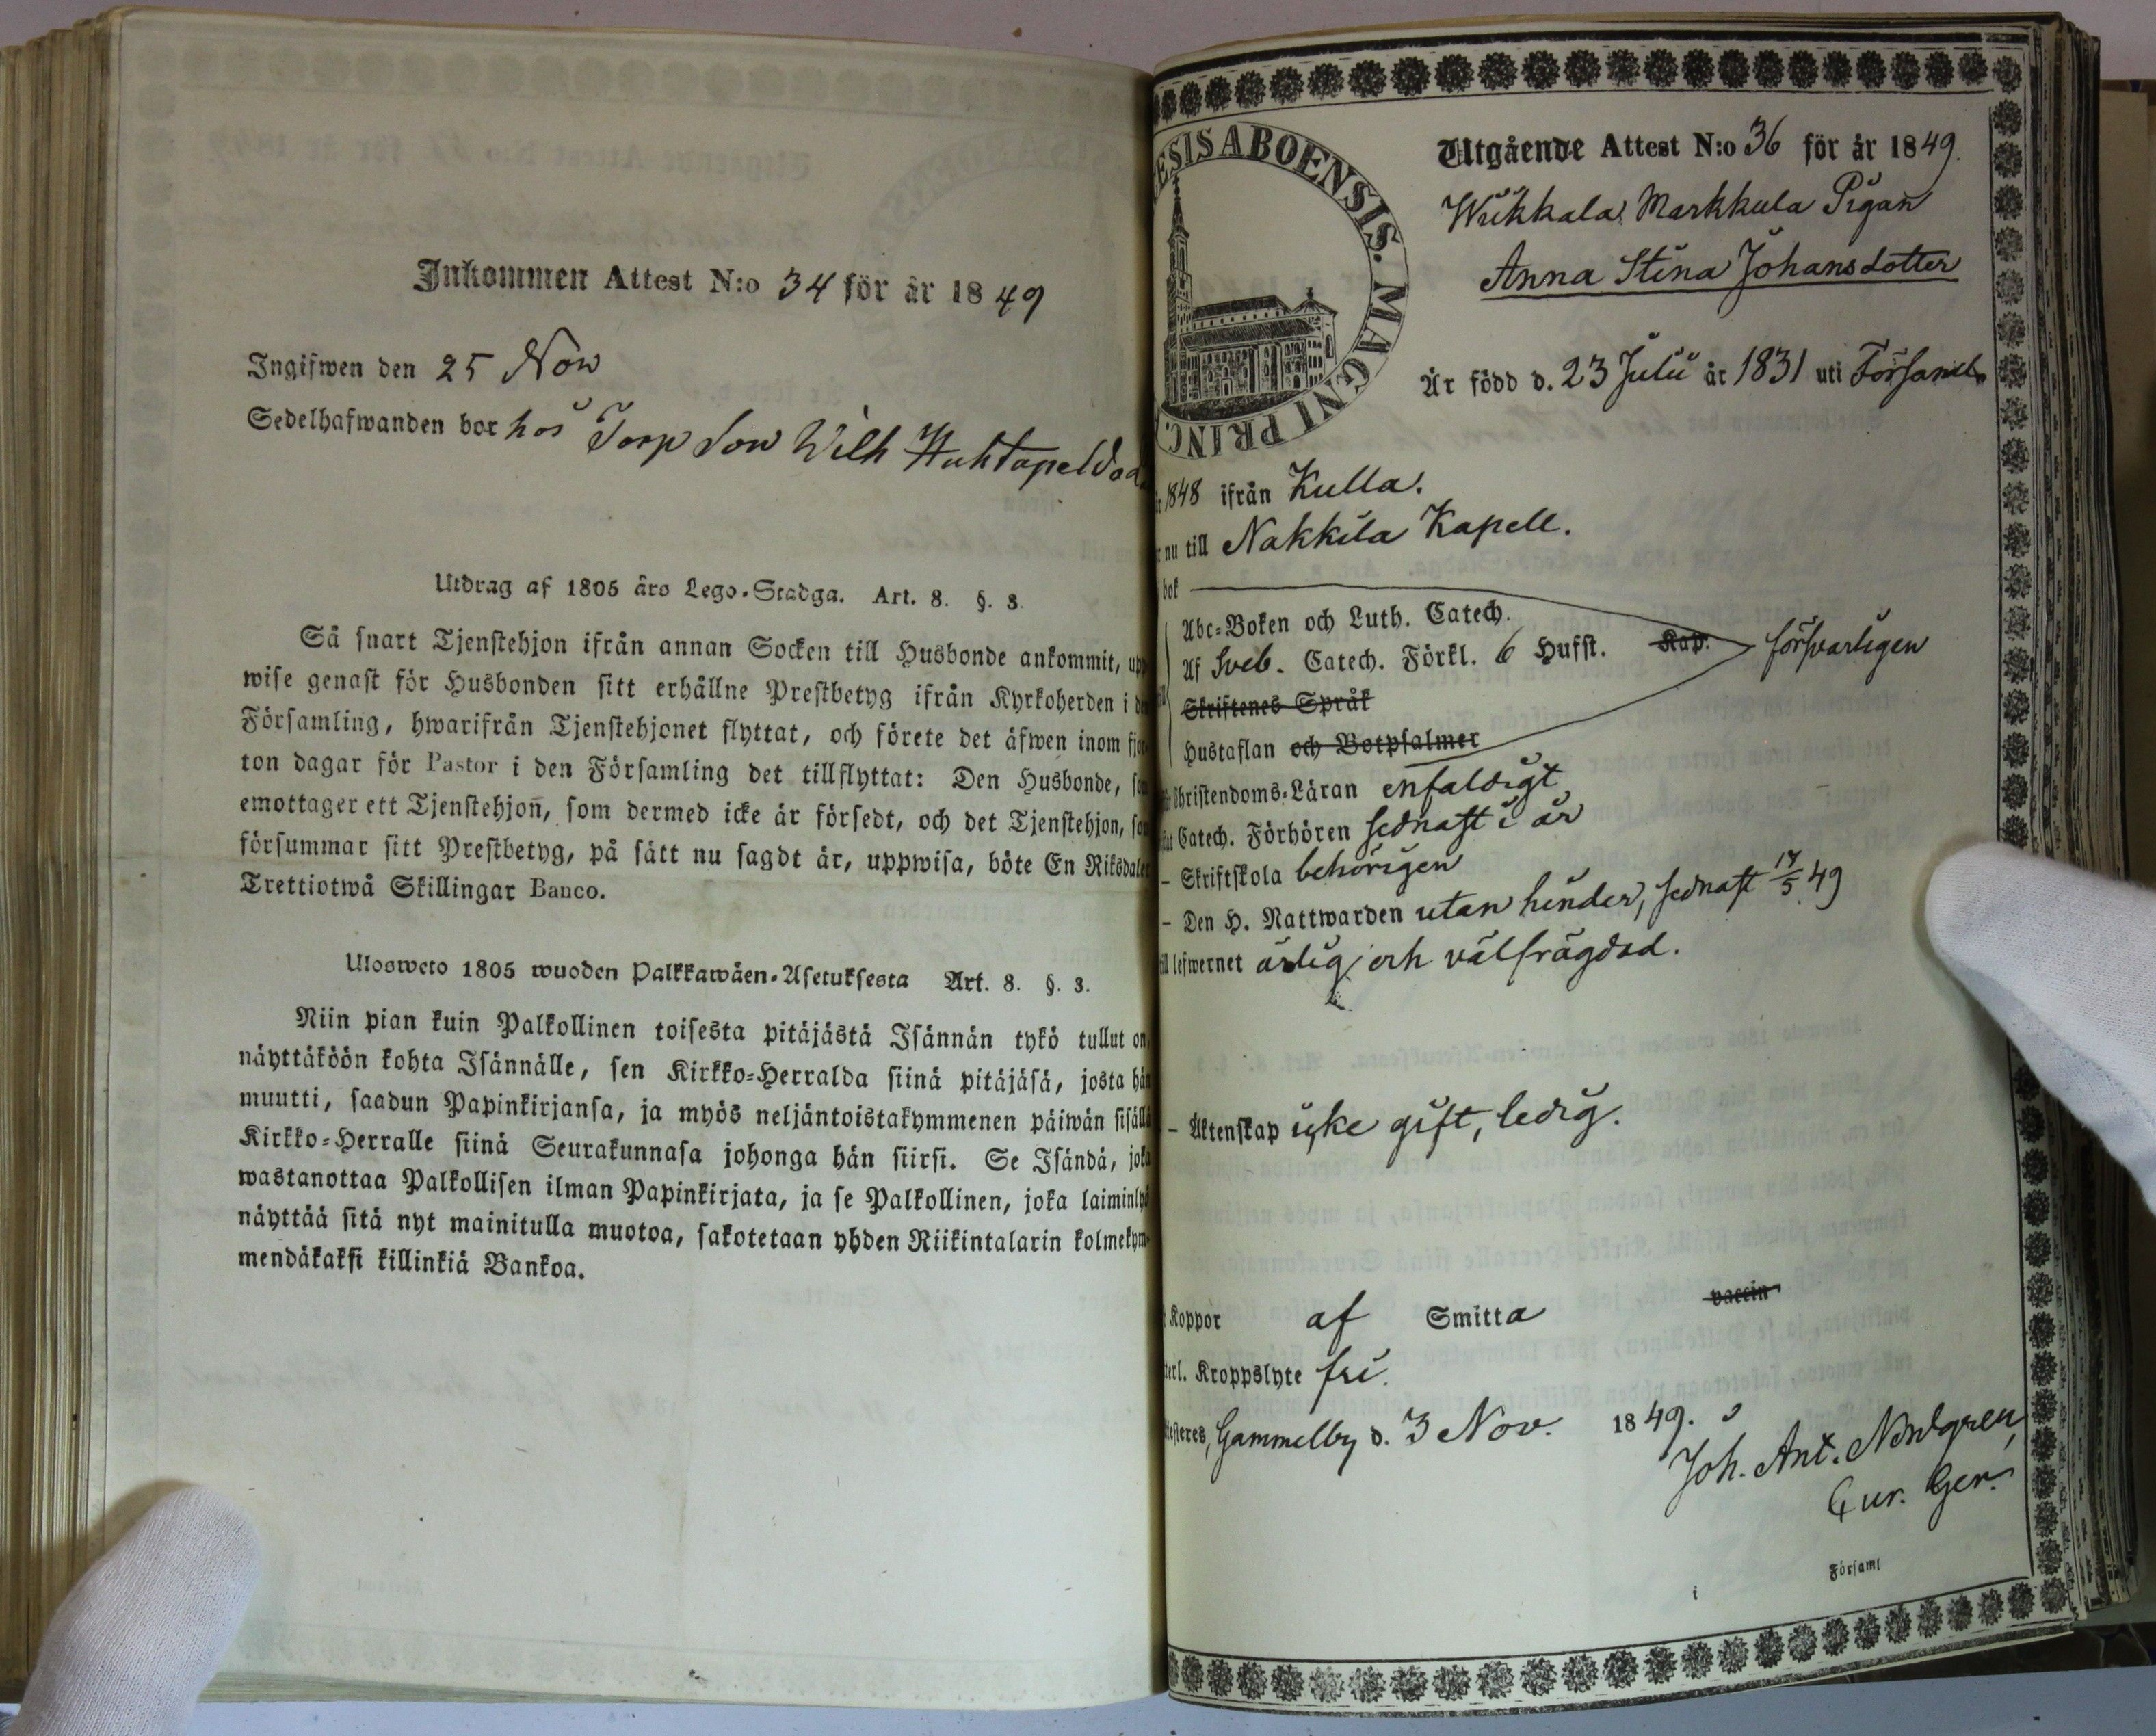 Inkommen Attest N:o 34 för år 1849
Ingifwen den 25 Nov
Sedelhafwanden bor hos Torp Son Wilh
Utdrag af 1805 års Lego-Stadga. Art. 8. §. 3.
Så snart Tjenstehjon ifrån annan Socken till Husbonde ankommit, upp
wise genast för Husbonden sitt erhållne Prestbetyg ifrån Kyrkoherden i den
Församling, hwarifrån Tjenstehjonet flyttat, och förete det äfwen inom fjor-
ton dagar för Pastor i den Församling det tillflyttat: Den Husbonde, som
emottager ett Tjenstehjon, som dermed icke är försedt, och det Tjenstehjon, som
försummar sitt Prestbetyg, på sätt nu sagdt är, uppwisa, böte En Riksdaler
Trettiotwå Skillingar Banco.
Uloswето 1805 wuoden Palkkawäen-Asetuksesta Art. 8. §. 3.
Niin pian kuin Palkollinen toisesta pitäjästä Isännän tykö tullut on,
näyttäköön kohta Isännälle, sen Kirkko-Herralda siinä pitäjäsä, josta hän
muutti, saadun Papinkirjansa, ja myös neljäntoistakymmenen päiwän sisällä
Kirkko-Herralle siinä Seurakunnasa johonga hän siirsi. Se Isändä, joka
wastanottaa Palkollisen ilman Papinkirjata, ja se Palkollinen, joka laiminlyö
näyttää sitä nyt mainitulla muotoa, sakotetaan yhden Riikintalarin kolmekym-
mendäkaksi killinkiä Bankoa.
ESIS ABOENSIS. MAGNI PRINC
Utgående Attest N:o 36 för år 1849.
Wiikkala Markkula Pigan
Anna Stina Johansdotter
Är född d. 23 Julii år 1831 uti Församl.
1848 ifrån Kulla.
nu till Nakkila Kapell.
bok
Abc-Boken och Luth. Catech.
Af Sveb. Catech. Förkl. 6 Hufst. Kap. försvarligen
Skriftenes Språk
Hustaflan och Botpsalmer
Christendoms-Läran enfaldigt
Catech. Förhören sednast i år
– Skriftskola behörigen
– Den H. Nattwarden utan hinder, sednast 17/5 49
lefwernet ärlig och välfrägdad.
– Äktenskap icke gift, ledig.
Koppor af Smitta vaccin
Kroppslyte fri.
Gammelby d. 3 Nov. 1849.
Joh. Ant. Nordgren
Cur. Ger.
i Församl